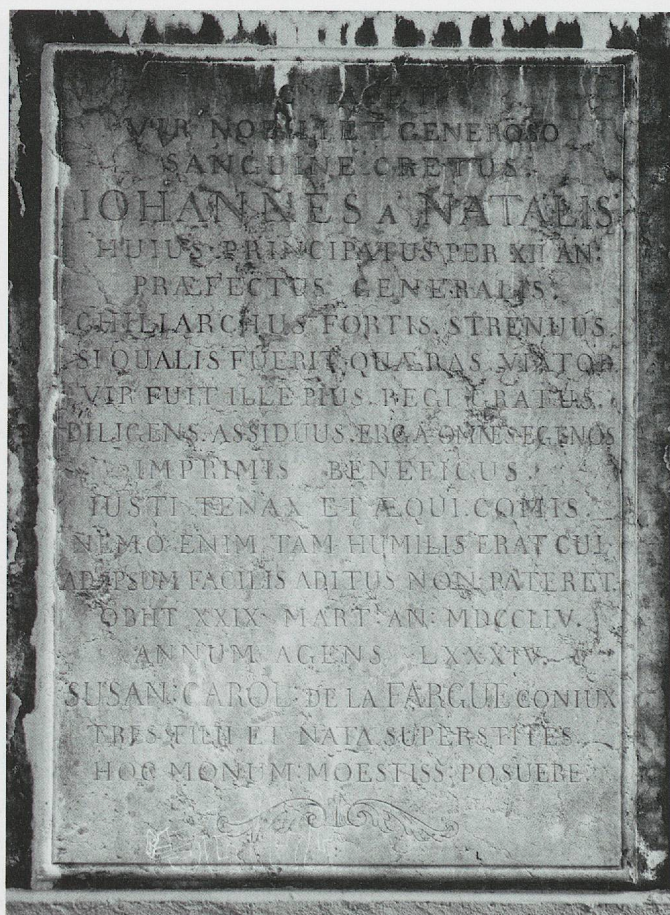 HIC IACET
VIR NOBILI ET GENEROSO
SANGUINE CRETUS.
IOHANNES A NATALIS
HUIUS PRINCIPATUS PER XII AN:
PRÆFECTUS GENERALIS.
CHILIARCHUS FORTIS. STRENUUS.
SI QUALIS FUERIT, QUÆRAS, VIATOR
VIR FUIT ILLE PIUS. REGI GRATUS.
DILIGENS. ASSIDUUS. ERGA OMNES EGENOS
IMPRIMIS BENEFICUS.
IUSTI TENAX ET ÆQUI. COMIS.
NEMO ENIM TAM HUMILIS ERAT CUI
AD IPSUM FACILIS ADITUS NON PATERET.
OBIIT XXIX MART: AN: MDCCLIV.
ANNUM AGENS LXXXIV.
SUSAN: CAROL: DE LA FARGUE CONIUX
TRES FILII ET NATA SUPERSTITES
HOC MONUM: MOESTISS: POSUERE.